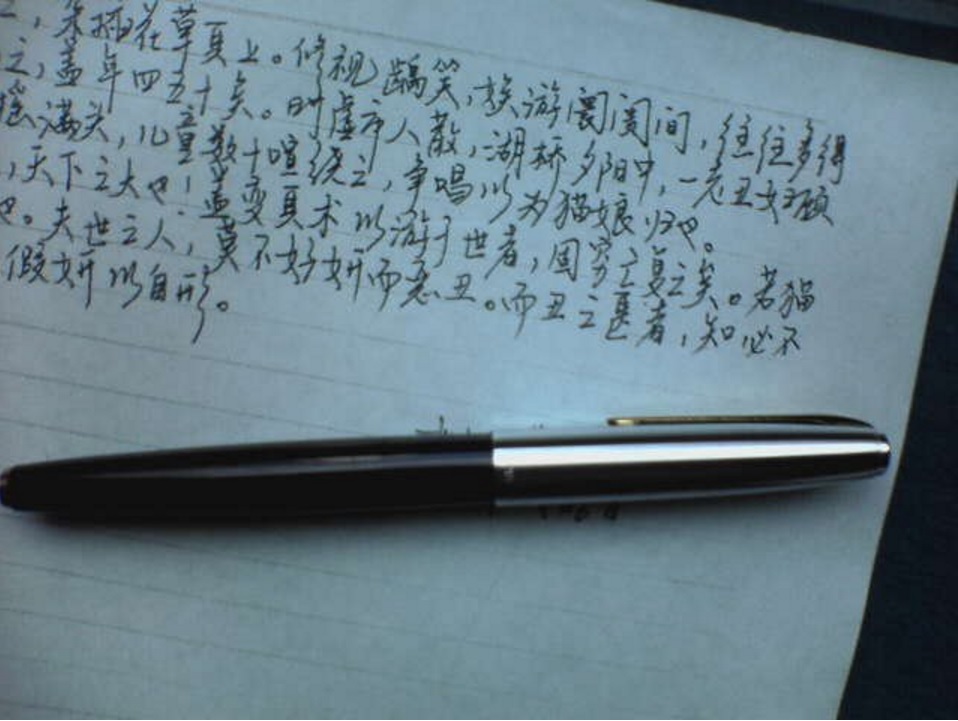 采插花草頁上。修视龋笑，族游阛阓间，往往多得
之，盖年四五十矣。时虚市人散，湖桥夕阳中，一老丑女顾
满头，儿童数十喧绕之，争唱以为猫娘归也。
，天下之大也！盖变其术以游于世者，固穷工复之矣。若猫
也。夫世之人，莫不好妍而恶丑。而丑之甚者，知必不
假妍以自形。